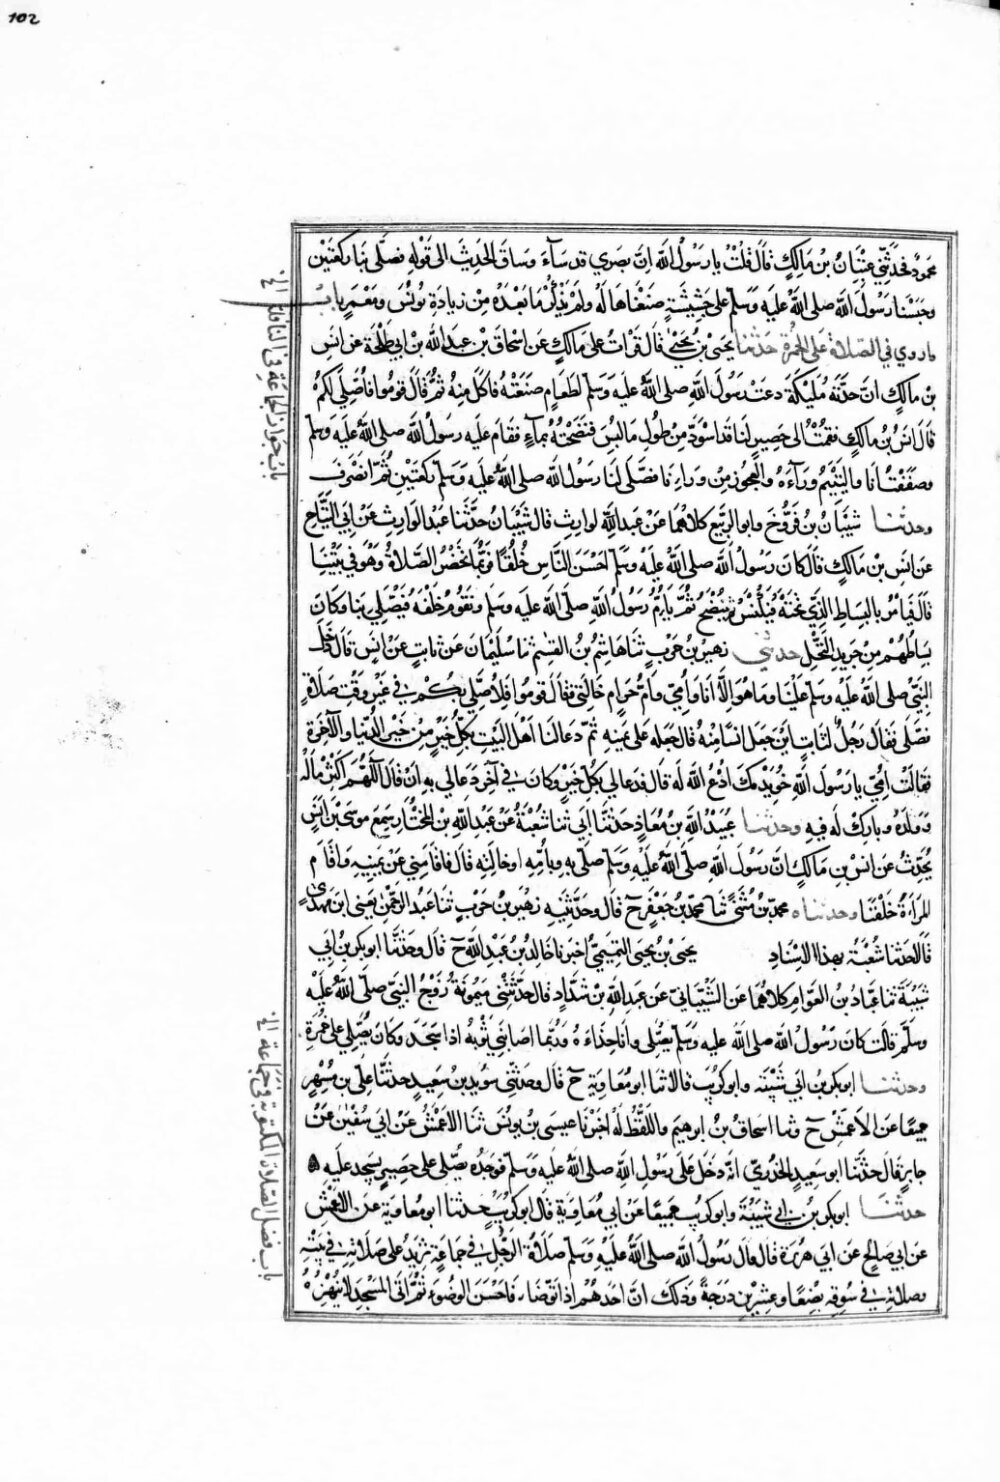 102
محمود فحدثني عتبان بن مالك قال قلت يا رسول الله ان بصري قد ساء وساق الحديث الى قوله فصلى بنا ركعتين
وحبسنا رسول الله صلى الله عليه وسلم على جشيشة صنعناها له ولم يذكر ما بعده من زيادة يونس ومعمر باب
ما روي في الصلاة على الخمرة حدثنا يحيى بن يحيى قال قرات على مالك عن اسحاق بن عبد الله بن ابي طلحة عن انس
بن مالك ان جدته مليكة دعت رسول الله صلى الله عليه وسلم لطعام صنعته فاكل منه ثم قال قوموا فاصلي لكم
قال انس بن مالك فقمت الى حصير لنا قد اسود من طول ما لبس فنضحته بماء فقام عليه رسول الله صلى الله عليه وسلم
وصففت انا واليتيم وراءه والعجوز من ورائنا فصلى لنا رسول الله صلى الله عليه وسلم ركعتين ثم انصرف
وحدثنا شيبان بن فروخ وابو الربيع كلاهما عن عبد الوارث قال شيبان حدثنا عبد الوارث عن ابي التياح
عن انس بن مالك قال كان رسول الله صلى الله عليه وسلم احسن الناس خلقا فربما تحضر الصلاة وهو في بيتنا
قال فيامر بالبساط الذي تحته فيكنس ثم ينضح ثم يؤم رسول الله صلى الله عليه وسلم ونقوم خلفه فيصلي بنا وكان
بساطهم من جريد النخل حدثني زهير بن حرب ثنا هاشم بن القسم ثنا سليمان عن ثابت عن انس قال دخل
النبي صلى الله عليه وسلم علينا وما هو الا انا وامي وام حرام خالتي فقال قوموا فلاصلي بكم في غير وقت صلاة
فصلى فقال رجل لثابت اين جعل انسا منه قال جعله على يمينه ثم دعا لنا اهل البيت بكل خير من خير الدنيا والآخرة
فقالت امي يا رسول الله خويدمك ادع الله له قال فدعا لي بكل خير وكان في آخر دعا لي به ان قال اللهم اكثر ماله
وولده وبارك له فيه وحدثنا عبيد الله بن معاذ حدثنا ابي ثنا شعبة عن عبد الله بن المختار سمع موسى بن انس
يحدث عن انس بن مالك ان رسول الله صلى الله عليه وسلم صلى به وبامه او خالته قال فاقامني عن يمينه واقام
المراة خلفنا وحدثناه محمد بن مثنى ثنا محمد بن جعفر ح قال وحدثنيه زهير بن حرب ثنا عبد الرحمن يعني ابن مهدي
قالا حدثنا شعبة بهذا الاسناد يحيى بن يحيى التميمي اخبرنا خالد بن عبد الله ح قال وحدثنا ابو بكر بن ابي
شيبة ثنا عباد بن العوام كلاهما عن الشيباني عن عبد الله بن شداد قال حدثتني ميمونة زوج النبي صلى الله عليه
وسلم قالت كان رسول الله صلى الله عليه وسلم يصلي وانا حذاءه وربما اصابني ثوبه اذا سجد وكان يصلي على خمرة
وحدثنا ابو بكر بن ابي شيبة وابو كريب قالا ثنا ابو معاوية ح قال وحدثني سويد بن سعيد حدثنا علي بن مسهر
جميعا عن الاعمش ح وثنا اسحاق بن ابرهيم واللفظ له اخبرنا عيسى بن يونس ثنا الاعمش عن ابي سفين عن
جابر قال حدثنا ابو سعيد الخدري انه دخل على رسول الله صلى الله عليه وسلم فوجده يصلي على حصير يسجد عليه
حدثنا ابو بكر بن ابي شيبة وابو كريب جميعا عن ابي معاوية قال ابو كريب حدثنا ابو معاوية عن الاعمش
عن ابي صالح عن ابي هريرة قال قال رسول الله صلى الله عليه وسلم صلاة الرجل في جماعة تزيد على صلاته في بيته
وصلاته في سوقه بضعا وعشرين درجة وذلك ان احدهم اذا توضا فاحسن الوضوء ثم اتى المسجد لا ينهزه
باب جواز الجماعة في النافلة الخ
باب فضل الصلاة المكتوبة في جماعة الخ